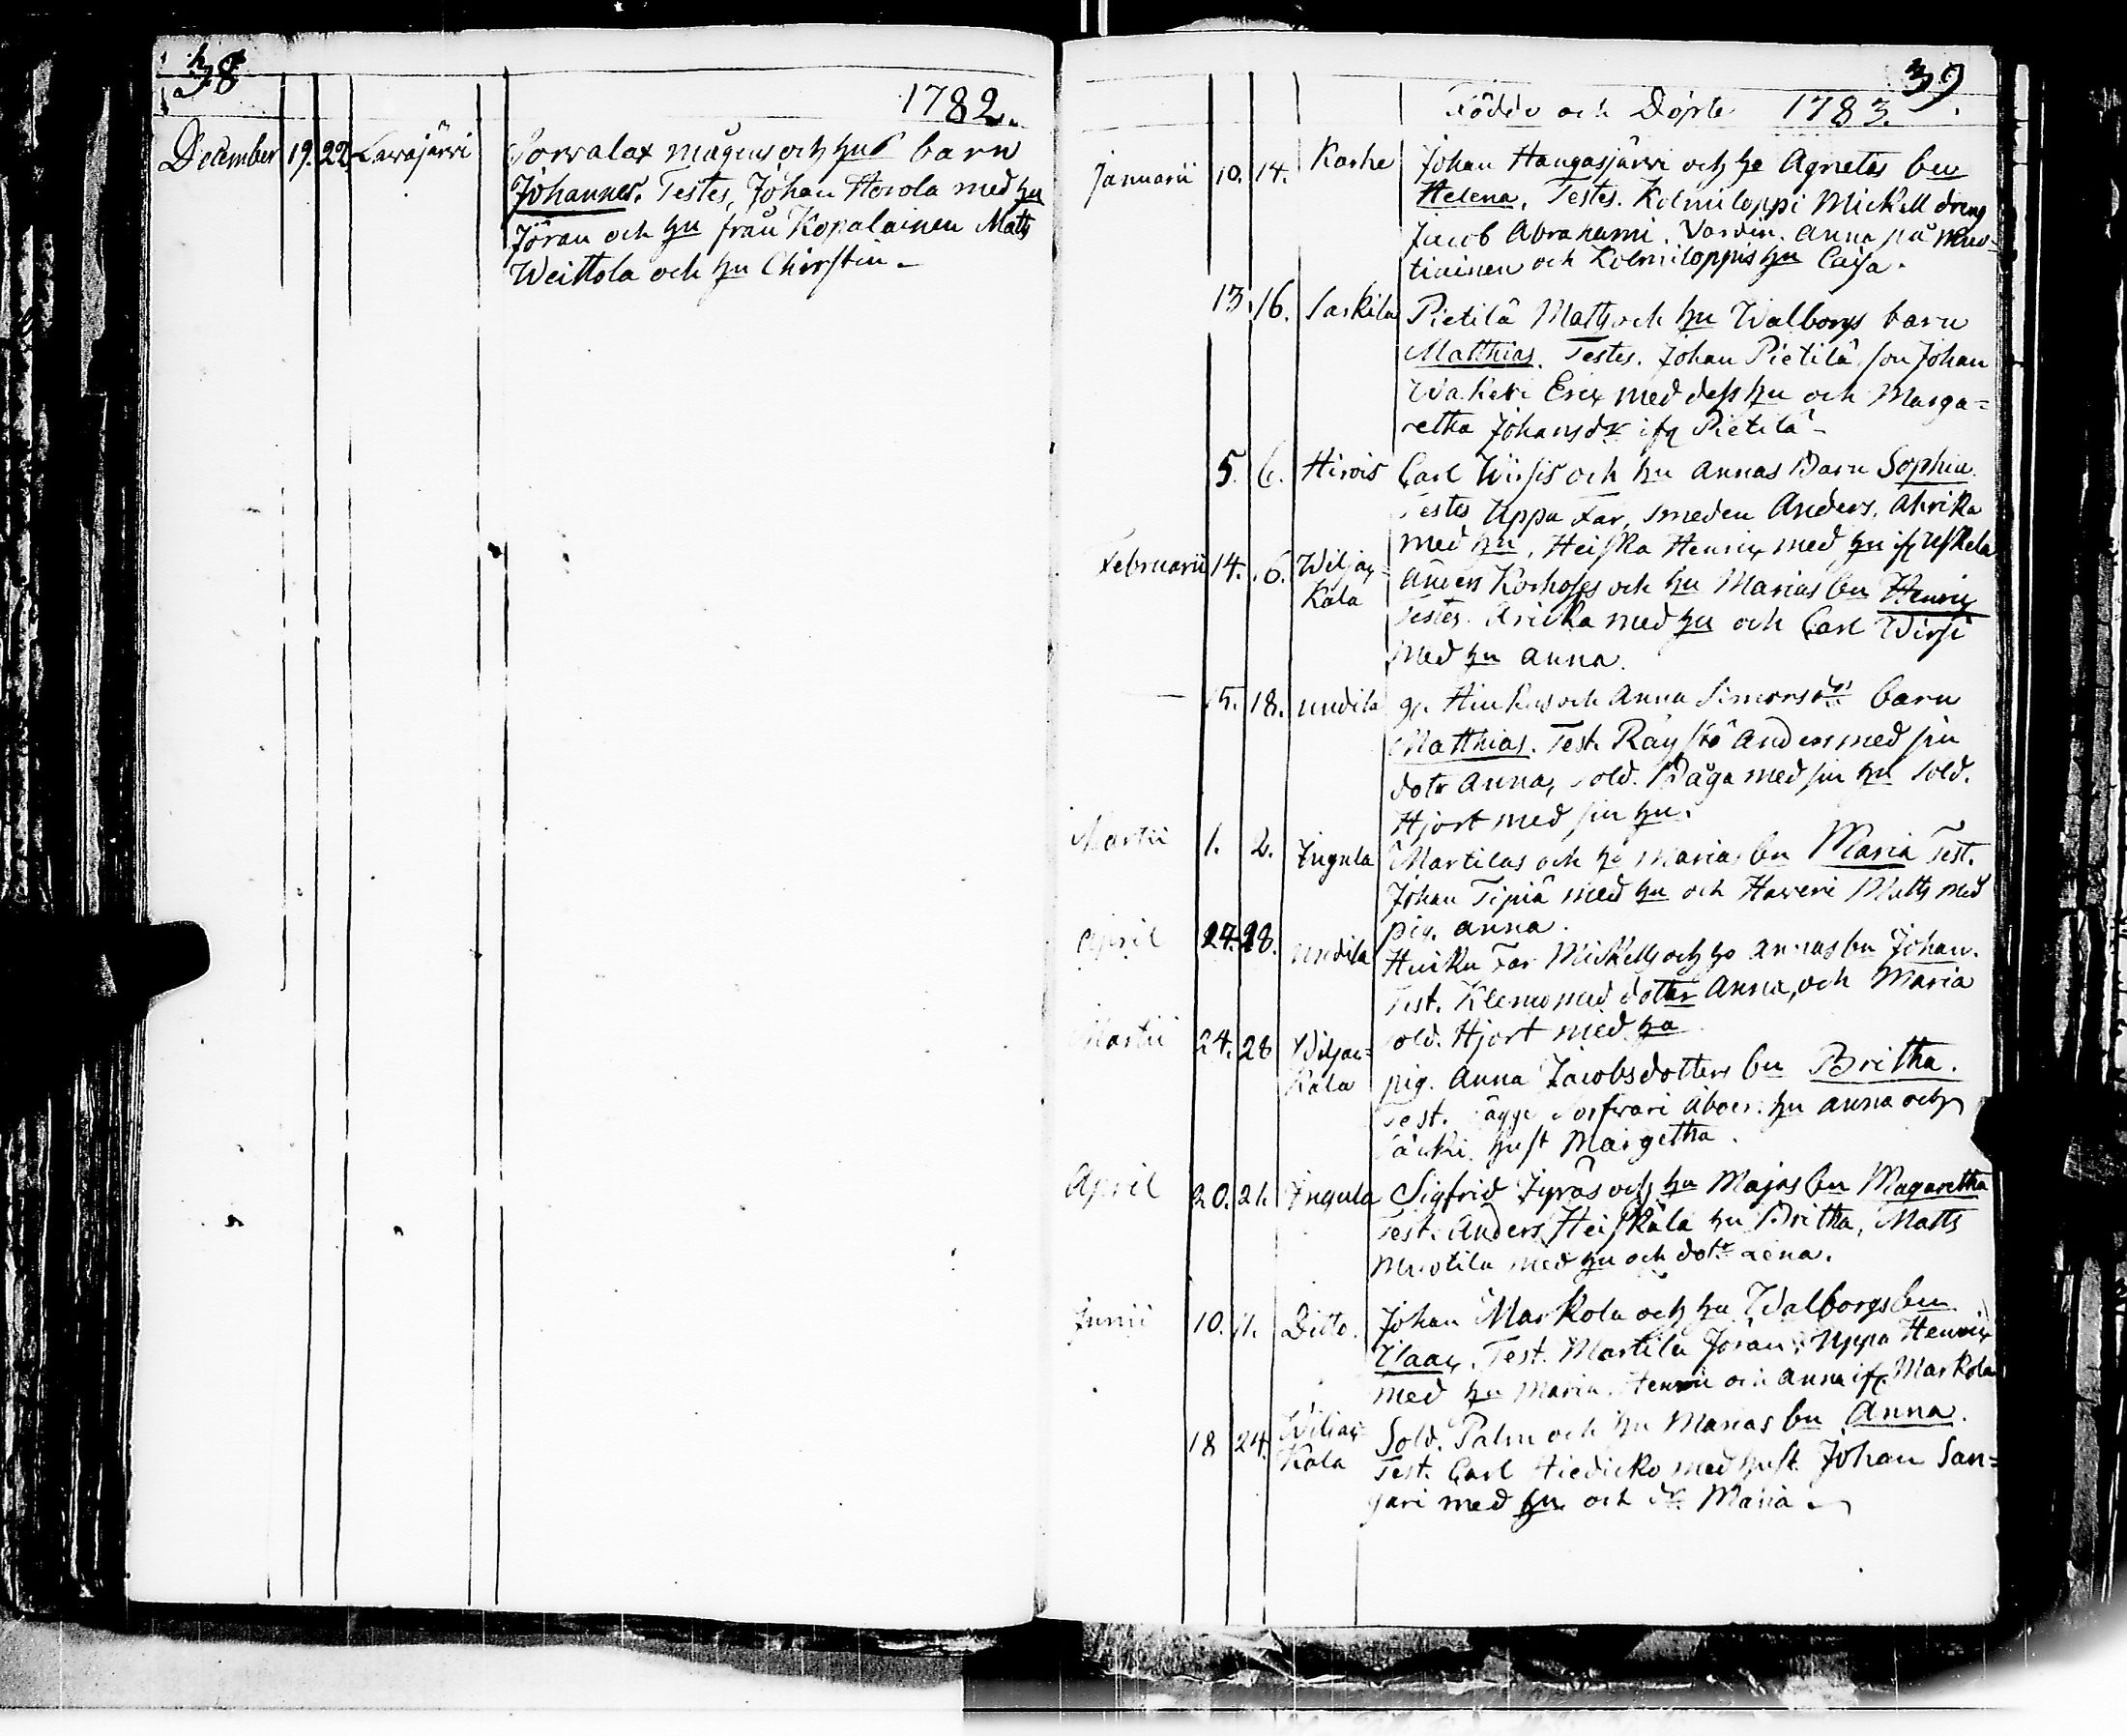 38
1782.
December 19. 22. Savajärvi Torvalax mågens och hus barn
Johannes. Testes, Johan Horola med hu
Jöran och hu från Kopalainen Matts
Weittola och hu Chirstin
39.
Födde och Döpte 1783.
Januarii 10. 14. Karhe Johan Haugasjärvi och ho Agnetæ bn
Helena. Testes. Kolmiloppi Mickell dreng
Jacob Abrahami. Anna på Mus=
tiainen och Kolmiloppis hu Caisa.
13. 16. Sarkila Pietilä Matts och hu Walborgs barn
Matthias. Testes. Johan Pietilä son Johan
Wakeri Erix med dess hu och Marga=
retha Johansdr ifr Pietilä
5. 6. Hirvis Carl Wirsis och hu Annas Barn Sophia
Testes Uppa Far, smeden Anders, Ahrika
med hu, Heiska Henrix med hu ifr Uskela
Februarii 14. 16. Wiljax= Anders Korhoses och hu Marias bn Henrix
Kala Testes Aricka med hu och Carl Wirsi
med hu Anna.
15. 18. Undila gr. Hinkus och Anna Simonsdrs barn
Matthias. Test. Räystö Anders med sin
dotr Anna, sold. Båga med sin hu sold.
Hjort med sin hu.
Martii 1. 2. Ingula Martilas och ho Marias bn Maria Test.
Johan Tipiä med hu och Haveri Matts med
pig. Anna.
April 27. 28. Undila Huiku Far Mickells och ho Annas bn Johan.
Test. Klemo med dotter Anna, och Maria
sold. Hjort med ho
Martii 24. 28 Wiljax=
Kala pig. Anna Jacobsdotters bn Britha.
Test. Åboer. hu Anna och
hust Margetha.
April 20. 21. Ingula Sigfrid Jyräs och hu Majas bn Magaretha
Test. Anders Heiskala hu Britha, Matts
med hu och dotr Lena.
Junii 10. 11. Ditto. Johan Markola och hu Walborgs bn
Isaax. Test. Martila Jöran, Uppa Henrix
med hu Maria. Henric och Anna ifr Markola
18 24. Wiljax= Sold. Palm och hu Marias bn Anna.
Kala Test. Carl Hiedicko med hust. Johan San=
jari med hu och dr Maria